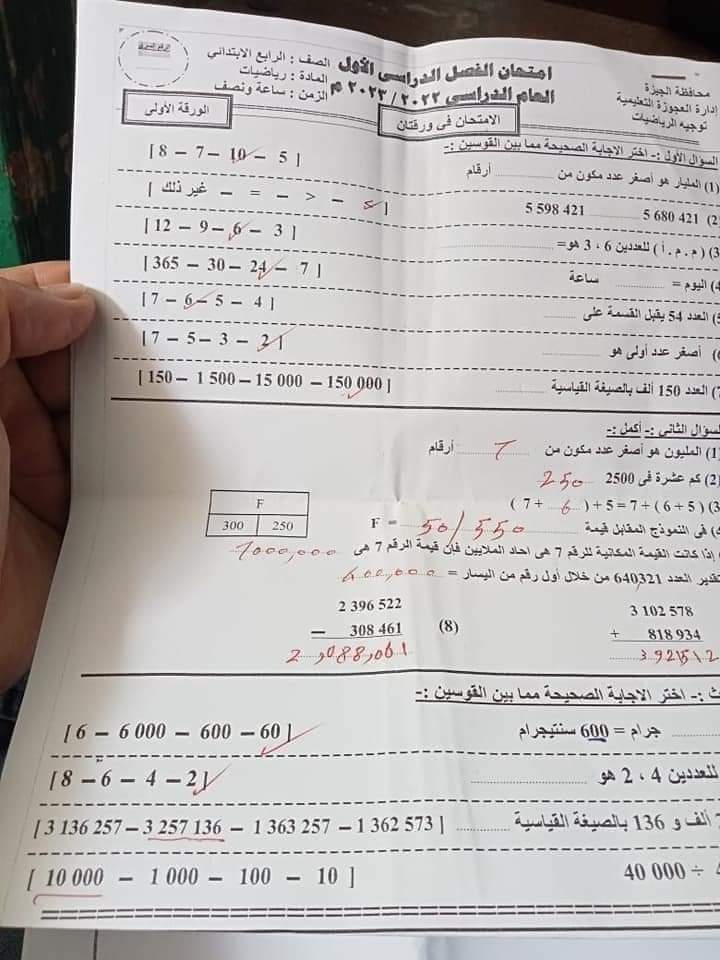 محافظة الجيزة
إدارة العجوزة التعليمية
توجيه الرياضيات
امتحان الفصل الدراسى الأول
العام الدراسى ٢٠٢٢ / ٢٠٢٣ م
الصف : الرابع الابتدائي
المادة : رياضيات
الزمن : ساعة ونصف
الامتحان فى ورقتان
الورقة الأولى
السؤال الأول :- اختر الاجابة الصحيحة مما بين القوسين :-
(1) المليار هو أصغر عدد مكون من ............ أرقام [ 8 – 7 – 10 – 5 ]
(2) 5 680 421 ............ 5 598 421 [ غير ذلك – = – > – ≤ ]
(3) ( م . م . أ ) للعددين 6 ، 3 هو= ............ [ 12 – 9 – 6 – 3 ]
(4) اليوم = ............ ساعة [ 365 – 30 – 24 – 7 ]
(5) العدد 54 يقبل القسمة على ............ [ 7 – 6 – 5 – 4 ]
أصغر عدد أولى هو ............ [ 7 – 5 – 3 – 2 ]
7) العدد 150 ألف بالصيغة القياسية ............ [ 150 – 1 500 – 15 000 – 150 000 ]
السؤال الثانى :- أكمل :-
(1) المليون هو أصغر عدد مكون من 7 أرقام
(2) كم عشرة فى 2500 250
(3) ( 5 + 6 ) + 7 = 5 + ( 6 + 7 )
فى النموذج المقابل قيمة F = 50/550
F
300 250
إذا كانت القيمة المكانية للرقم 7 هى احاد الملايين فإن قيمة الرقم 7 هى 7000,000
تقدير العدد 640321 من خلال أول رقم من اليسار = 600,000
3 102 578
+ 818 934
3921512
(8)
2 396 522
– 308 461
2,088,061
ث :- اختر الاجابة الصحيحة مما بين القوسين :-
............ جرام = 600 سنتيجرام [ 6 – 6 000 – 600 – 60 ]
للعددين 4 ، 2 هو ............ [ 8 – 6 – 4 – 2 ]
ألف و 136 بالصيغة القياسية ............ [ 3 136 257 – 3 257 136 – 1 363 257 – 1 362 573 ]
40 000 ÷ 4 [ 10 000 – 1 000 – 100 – 10 ]